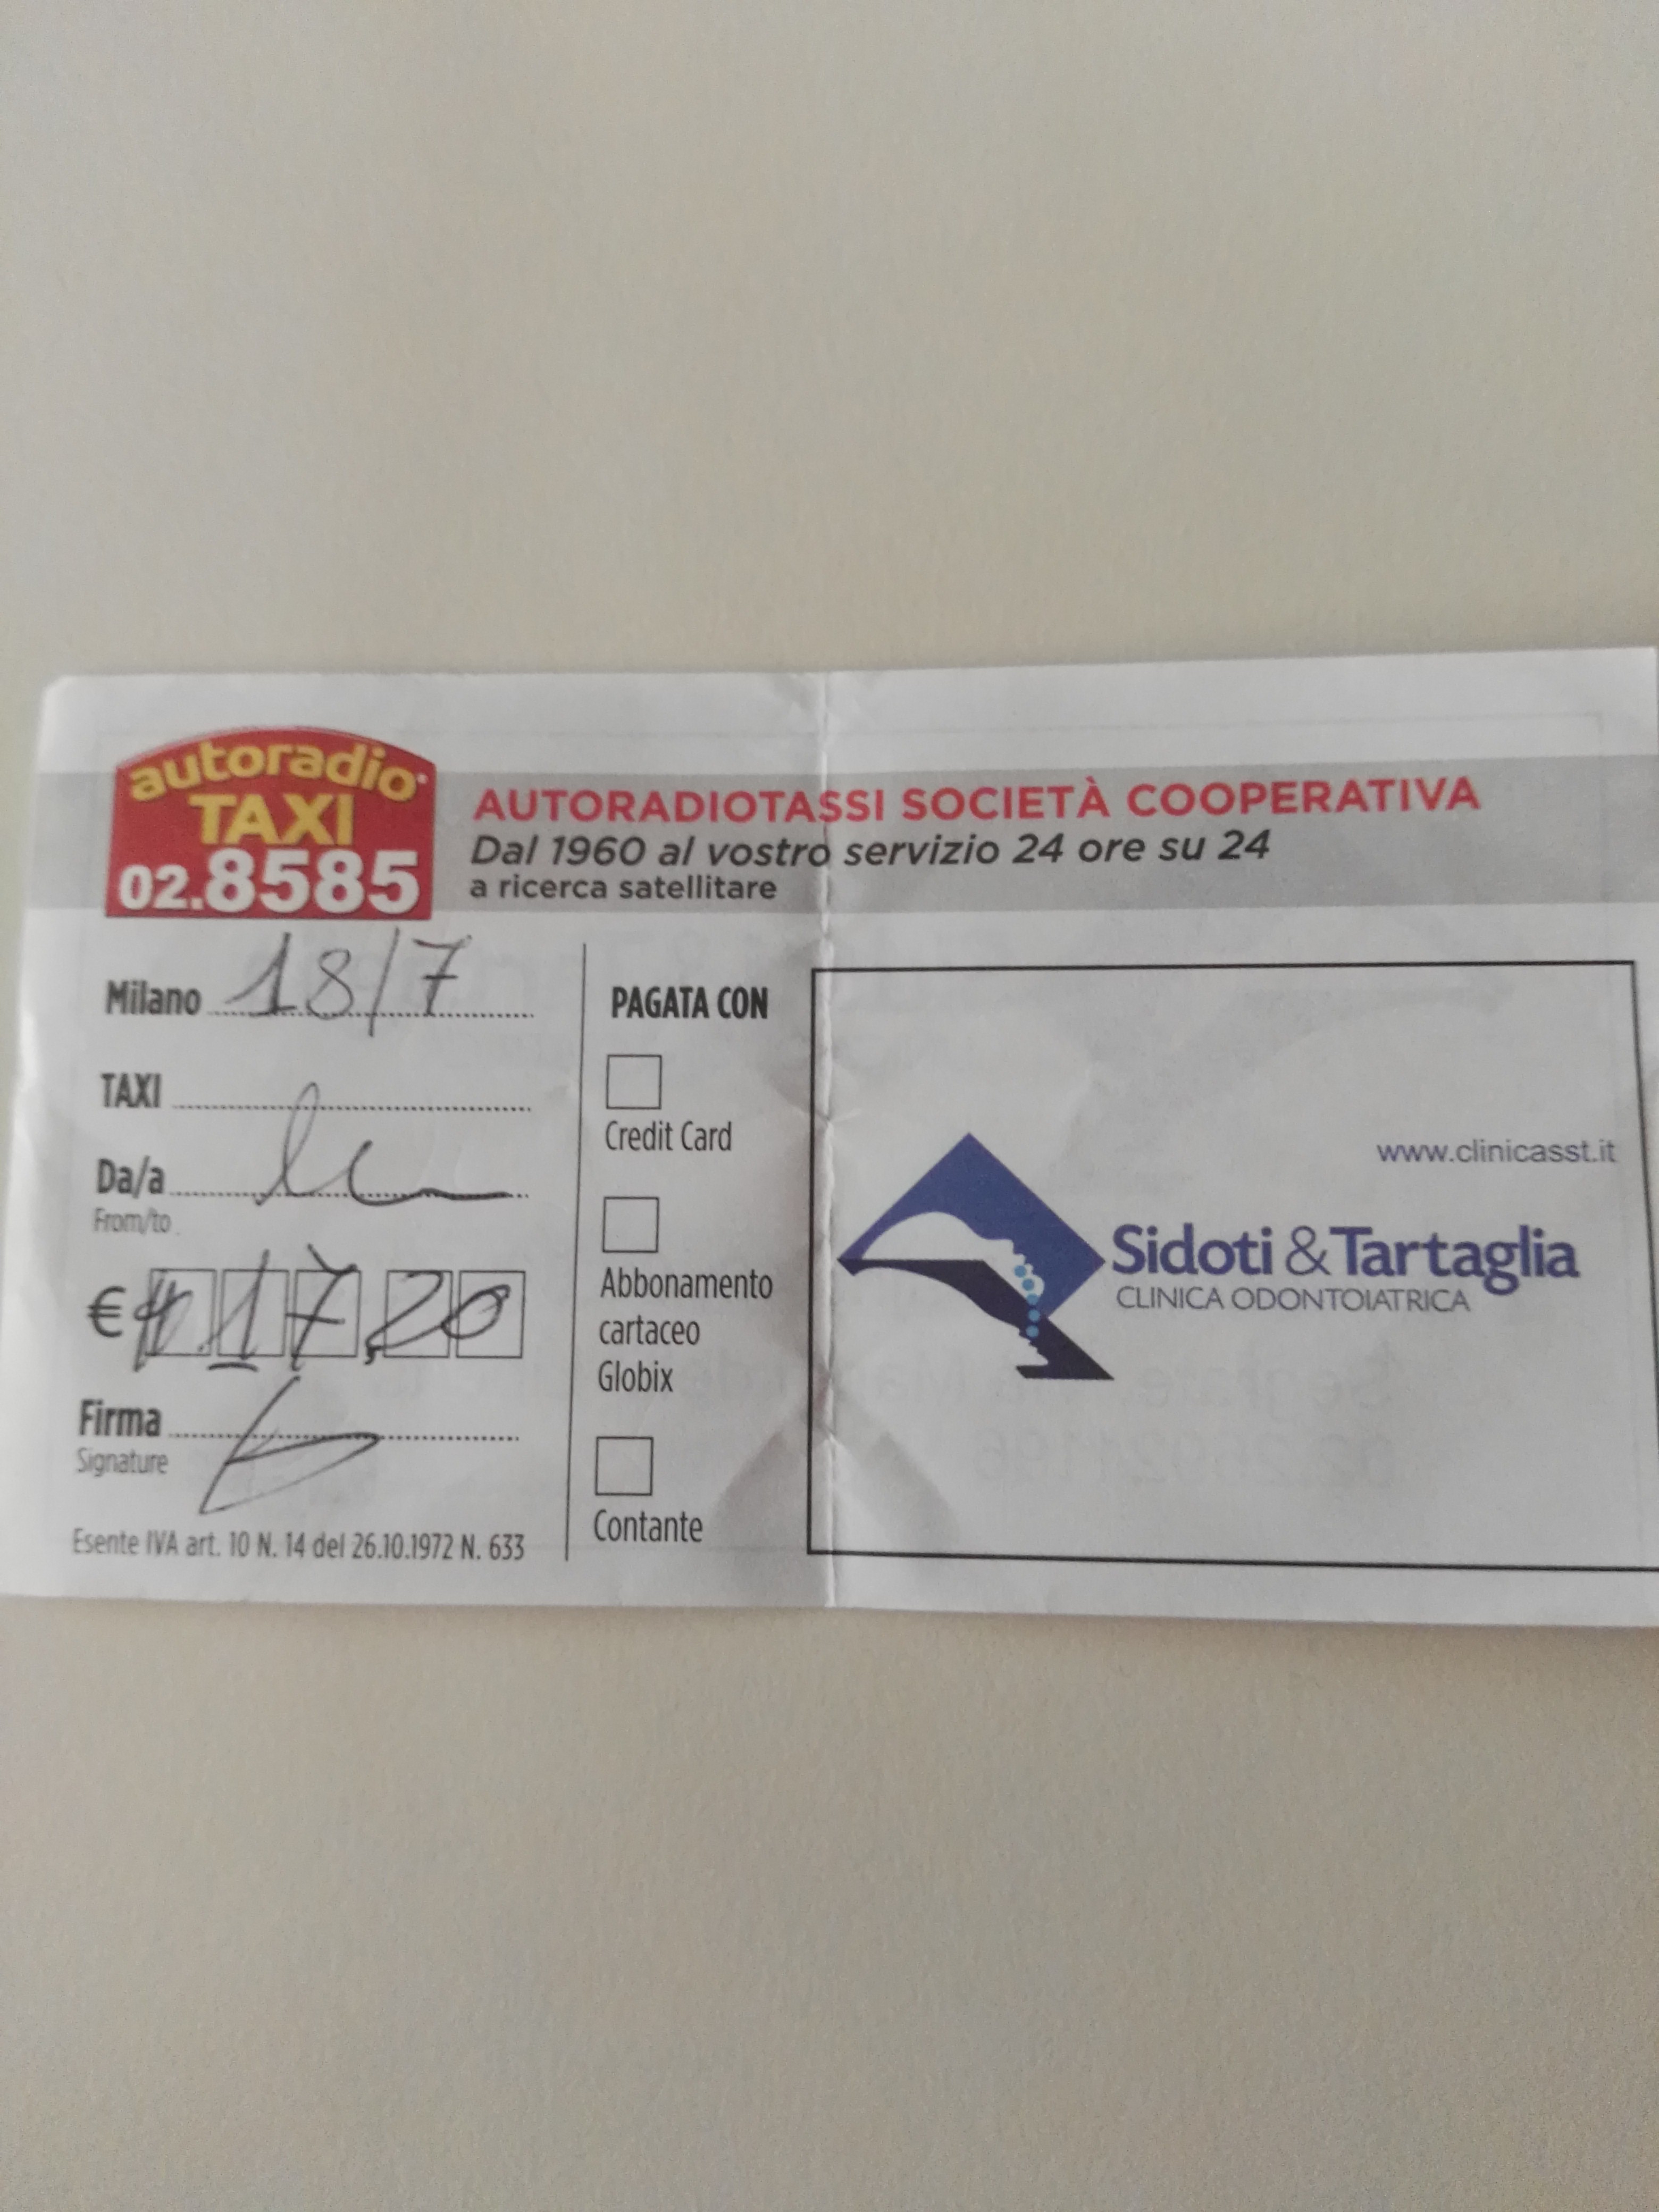 autoradio
TAXI
02.8585
AUTORADIOTASSI SOCIETÀ COOPERATIVA
Dal 1960 al vostro servizio 24 ore su 24
a ricerca satellitare
Milano 18/7
TAXI
Da/a
From/to
€ 17,20
Firma
Signature
Esente IVA art. 10 N. 14 del 26.10.1972 N. 633
PAGATA CON
Credit Card
Abbonamento
cartaceo
Globix
Contante
www.clinicasst.it
Sidoti & Tartaglia
CLINICA ODONTOIATRICA